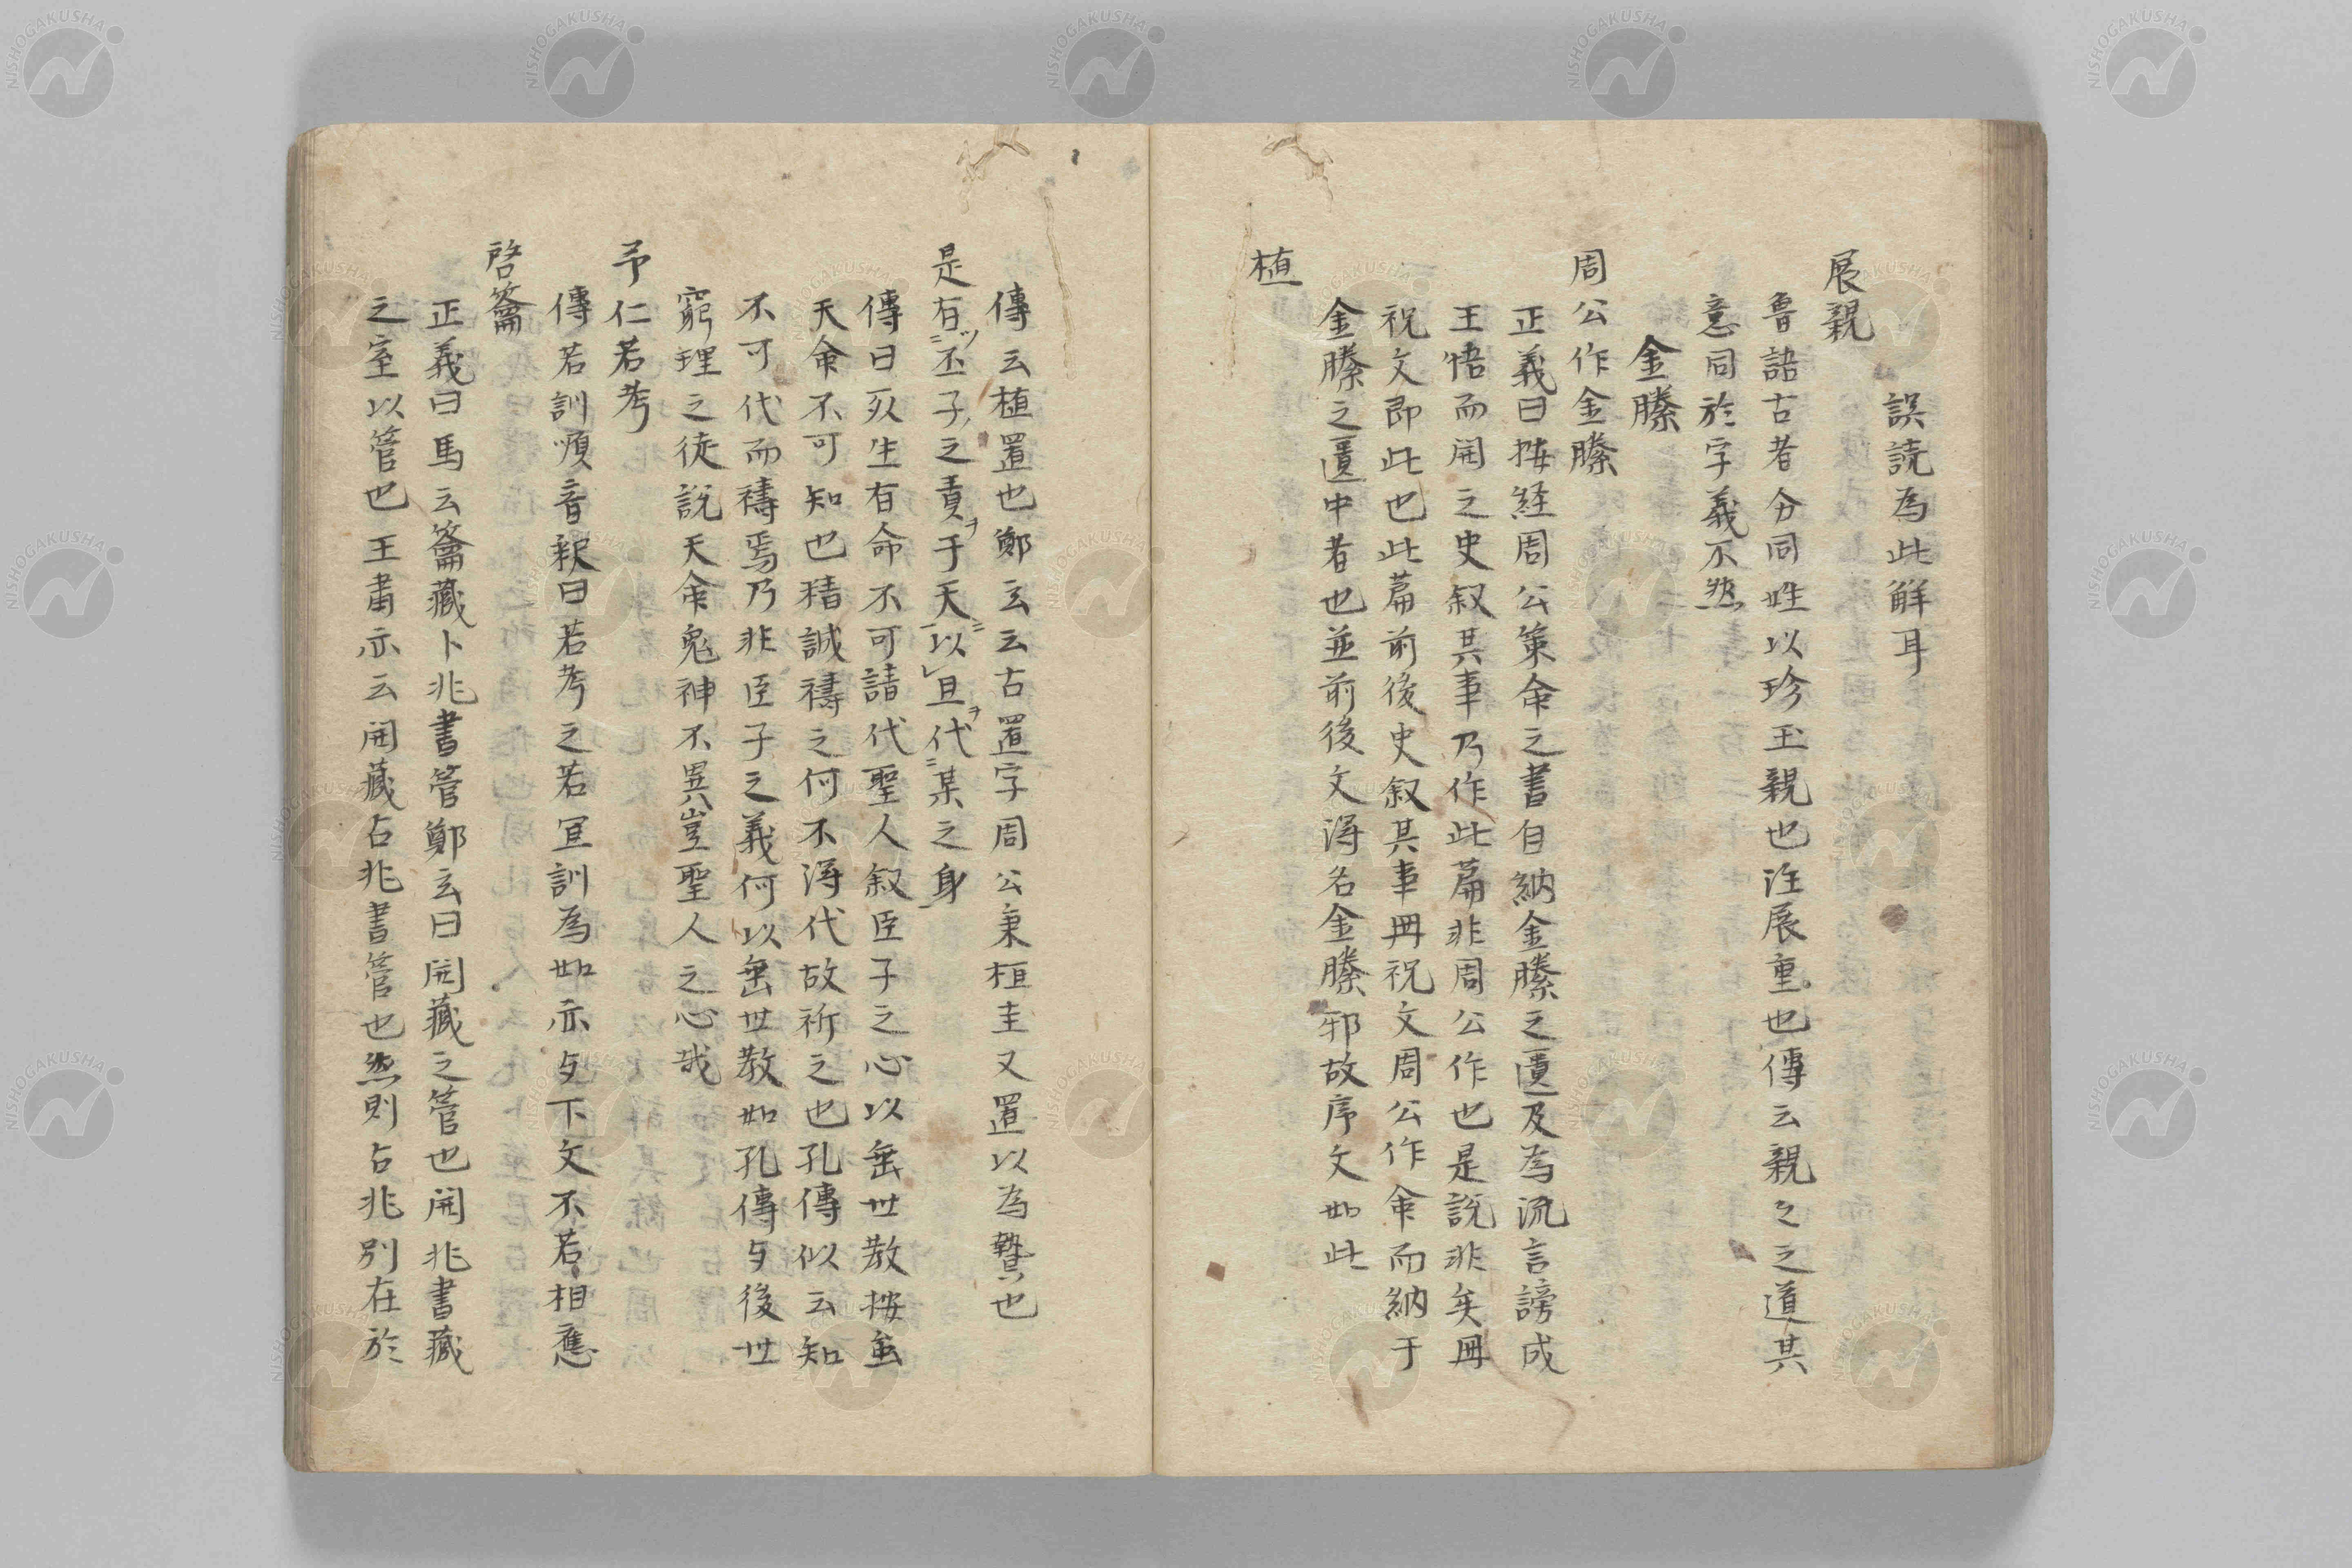 誤読為此解耳
展親
魯語古者分同姓以珍玉親也注展重也傳云親之道其
意同於字義不然
金縢
周公作金縢
正義曰按経周公策命之書自納金縢之匱及為流言謗成
王悟而開之史叙其事乃作此篇非周公作也是説非矣冊
祝文即此也此篇前後史叙其事冊祝文周公作命而納于
金縢之匱中者也並前後文得名金縢邪故序文如此
植
傳云植置也鄭云云古置字周公秉桓圭又置以為贄也
是有丕子之責于天以旦代某之身
傳曰死生有命不可請代聖人叙臣子之心以垂世教按虽
天命不可知也精誠禱之何不得代故祈之也孔傳似云知
不可代而禱焉乃非臣子之義何以垂世教如孔傳与後世
窮理之徒説天命鬼神不異豈聖人之心哉
予仁若考
傳若訓順音釈曰若考之若宜訓為如亦与下文不若相應
啓籥
正義曰馬云籥藏卜兆書管鄭云曰開藏之管也開兆書藏
之室以管也王肅亦云開藏占兆書管也然則占兆別在於
NISHOGAKUSHA